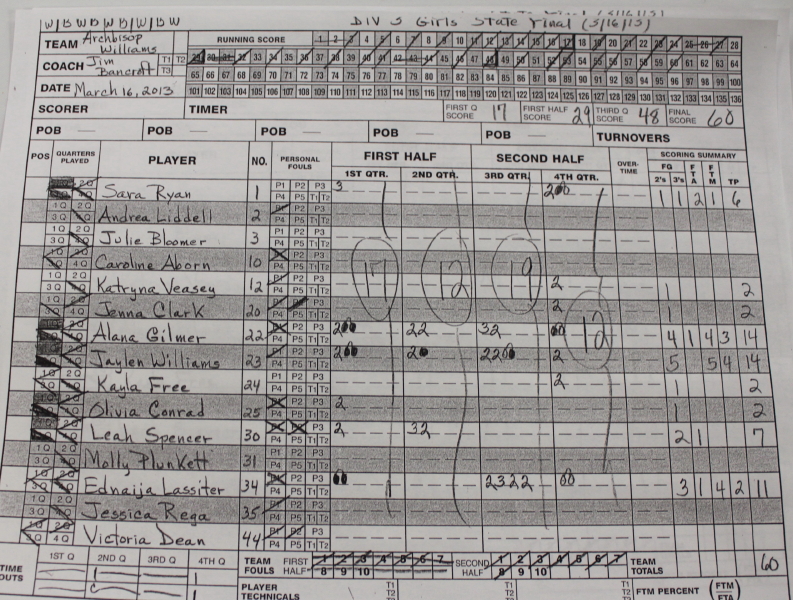 W/B W/B W/B W/B W
DIV 3 Girls State Final (3/16/13)
TEAM Archbisop Williams
RUNNING SCORE 1 2 3 4 5 6 7 8 9 10 11 12 13 14 15 16 17 18 19 20 21 22 23 24 25 26 27 28
COACH Jim Bancroft T1 T2 T3 29 30 31 32 33 34 35 36 37 38 39 40 41 42 43 44 45 46 47 48 49 50 51 52 53 54 55 56 57 58 59 60 61 62 63 64
65 66 67 68 69 70 71 72 73 74 75 76 77 78 79 80 81 82 83 84 85 86 87 88 89 90 91 92 93 94 95 96 97 98 99 100
DATE March 16, 2013 101 102 103 104 105 106 107 108 109 110 111 112 113 114 115 116 117 118 119 120 121 122 123 124 125 126 127 128 129 130 131 132 133 134 135 136
SCORER TIMER FIRST Q SCORE 17 FIRST HALF SCORE 29 THIRD Q SCORE 48 FINAL SCORE 60
POB — POB — POB — POB — POB — TURNOVERS
POS QUARTERS PLAYED PLAYER NO. PERSONAL FOULS FIRST HALF SECOND HALF OVER-TIME SCORING SUMMARY
1ST QTR. 2ND QTR. 3RD QTR. 4TH QTR. FG 2's 3's FTA FTM TP
Sara Ryan 1 P1 P2 P3 P4 P5 T1 T2 3 200 1 1 2 1 6
Andrea Liddell 2
Julie Bloomer 3
Caroline Aborn 10 17 12 19 12
Katryna Veasey 12 2 1 2
Jenna Clark 20 2 1 2
Alana Gilmer 22 200 22 32 00 4 1 4 3 14
Jaylen Williams 23 200 20 2200 2 5 5 4 14
Kayla Free 24 2 1 2
Olivia Conrad 25 2 1 2
Leah Spencer 30 2 32 2 1 7
Molly Plunkett 31
Ednaija Lassiter 34 00 2322 00 3 1 4 2 11
Jessica Rega 35
Victoria Dean 44
TIME OUTS 1ST Q 2ND Q 3RD Q 4TH Q TEAM FOULS FIRST HALF 1 2 3 4 5 6 7 8 9 10 SECOND HALF 1 2 3 4 5 6 7 8 9 10 TEAM TOTALS 60
PLAYER TECHNICALS T1 T2 T1 T2 T1 T2 FTM PERCENT (FTM/FTA)